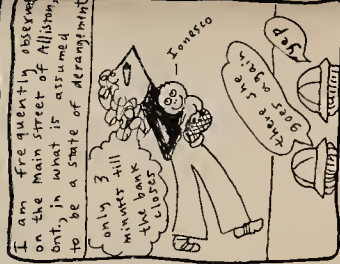 I am frequently observed
on the Main Street of Alliston,
ont., in what is assumed
to be a state of derangement
Ionesco
only 3
minutes till
the bank
closes
there she
goes again
yep